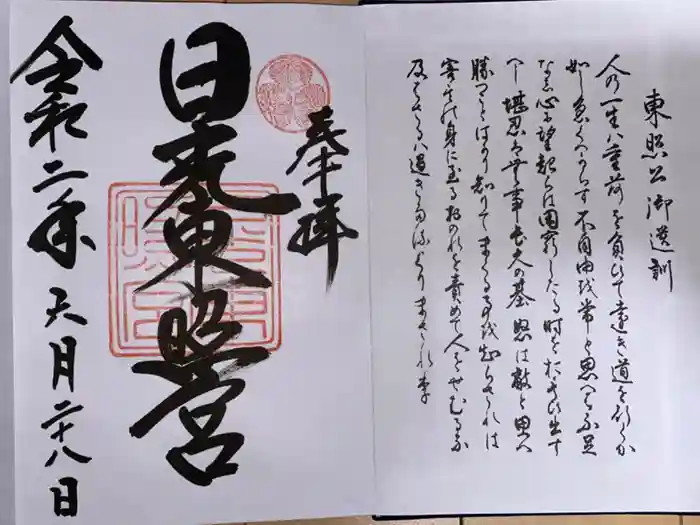 東照公御遺訓
人の一生ハ重荷を負いて遠き道を行くか
如し急くへからす不自由を常と思へは不足
なし心に望起らは困窮したる時を於もひ出す
へし堪忍は無事長久の基 怒は敵と思へ
勝つことはかり知りてまくる事を知らされは
害其の身に至るおのれを責めて人をせむるな
及はさるハ過きたるよりまされり
奉拝
日光東照宮
令和二年六月二十八日